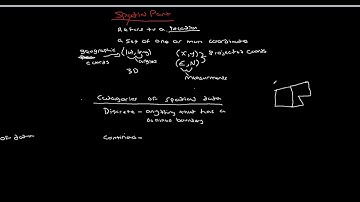 Spatial Part
Refers to a location
a set of one or more coordinate
geographic (lat, long) (X, Y) projected coords
coords angles (E, N)
3D measurements
Categories of spatial data
Discrete - anything that has a
boundary
of data continuous -